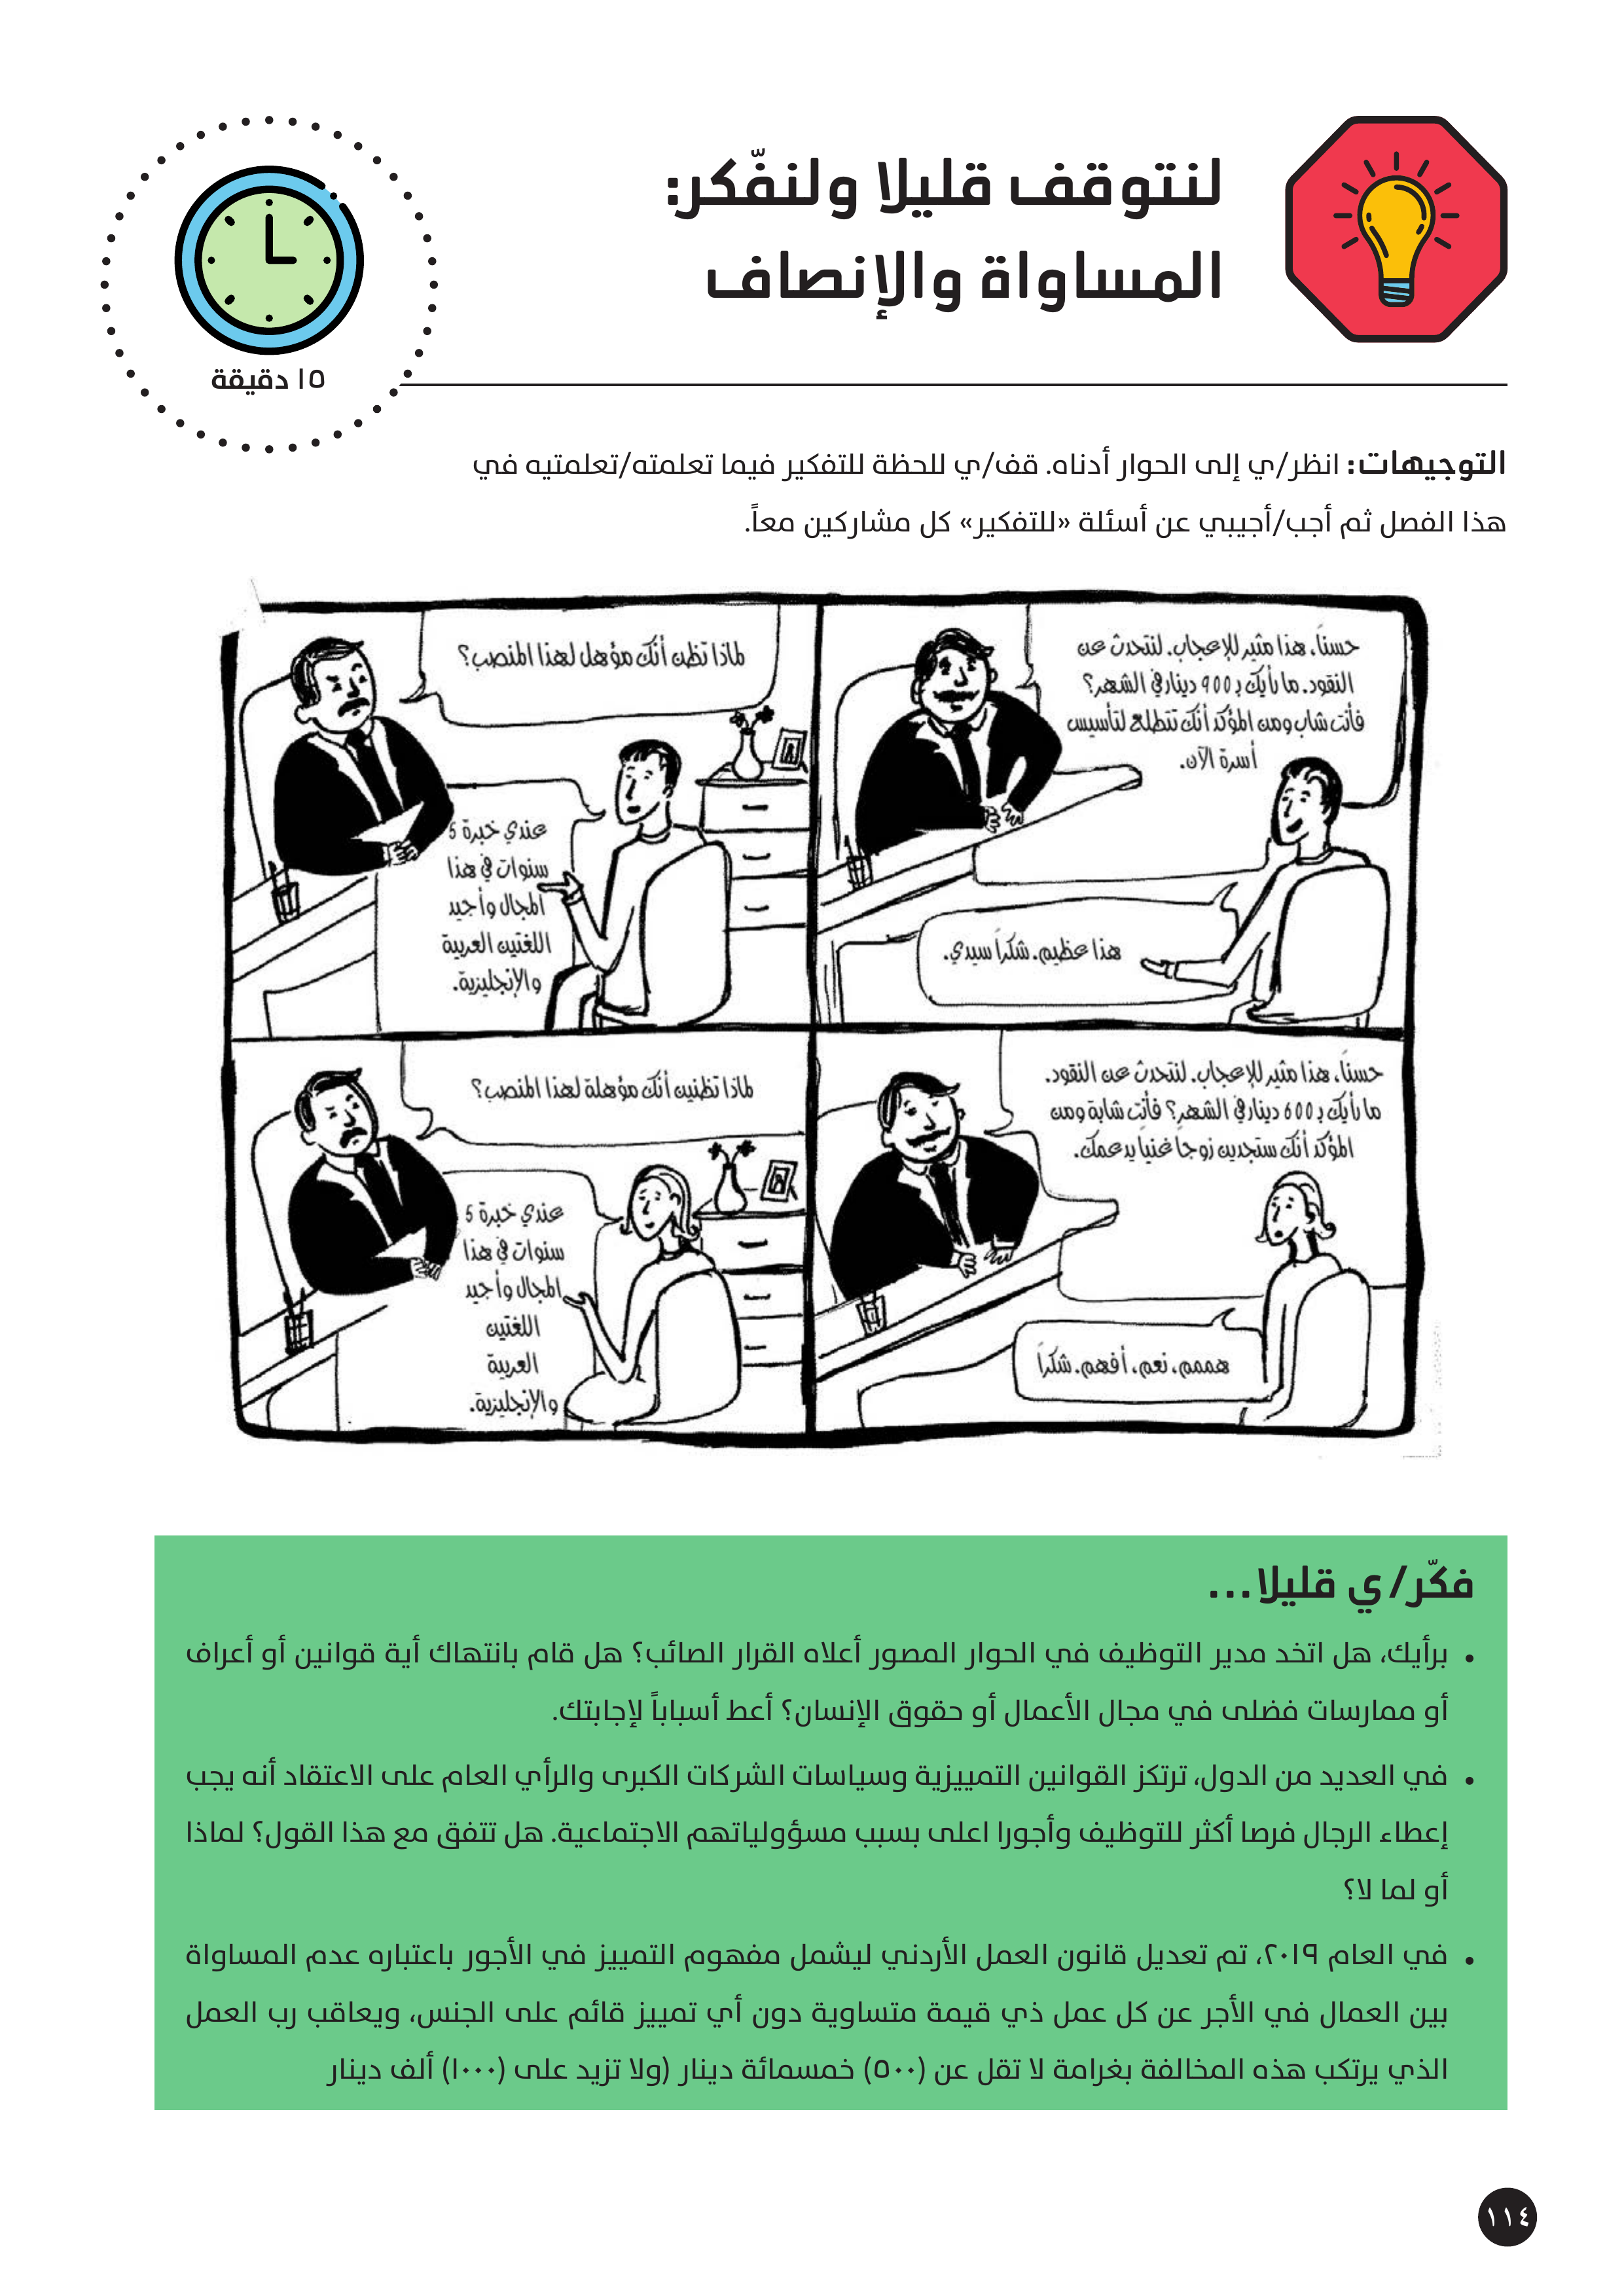 لنتوقف قليلا ولنفّكر:
المساواة والإنصاف
١٥ دقيقة
التوجيهات: انظر/ي إلى الحوار أدناه. قف/ي للحظة للتفكير فيما تعلمته/تعلمتيه في
هذا الفصل ثم أجب/أجيبي عن أسئلة «للتفكير» كل مشاركين معاً.
لماذا تظن أنك مؤهل لهذا المنصب؟
عندي خبرة 5
سنوات في هذا
المجال وأجيد
اللغتين العربية
والإنجليزية.
حسناً، هذا مثير للإعجاب. لنتحدث عن
النقود. ما رأيك بـ 900 دينار في الشهر؟
فأنت شاب ومن المؤكد أنك تتطلع لتأسيس
أسرة الآن.
هذا عظيم. شكراً سيدي.
لماذا تظنين أنك مؤهلة لهذا المنصب؟
عندي خبرة 5
سنوات في هذا
المجال وأجيد
اللغتين
العربية
والإنجليزية.
حسناً، هذا مثير للإعجاب. لنتحدث عن النقود.
ما رأيك بـ 600 دينار في الشهر؟ فأنت شابة ومن
المؤكد أنك ستجدين زوجاً غنياً يدعمك.
هممم، نعم، أفهم. شكراً
فكّر/ي قليلا...
• برأيك، هل اتخد مدير التوظيف في الحوار المصور أعلاه القرار الصائب؟ هل قام بانتهاك أية قوانين أو أعراف
أو ممارسات فضلى في مجال الأعمال أو حقوق الإنسان؟ أعط أسباباً لإجابتك.
• في العديد من الدول، ترتكز القوانين التمييزية وسياسات الشركات الكبرى والرأي العام على الاعتقاد أنه يجب
إعطاء الرجال فرصا أكثر للتوظيف وأجورا اعلى بسبب مسؤولياتهم الاجتماعية. هل تتفق مع هذا القول؟ لماذا
أو لما لا؟
• في العام ٢٠١٩، تم تعديل قانون العمل الأردني ليشمل مفهوم التمييز في الأجور باعتباره عدم المساواة
بين العمال في الأجر عن كل عمل ذي قيمة متساوية دون أي تمييز قائم على الجنس، ويعاقب رب العمل
الذي يرتكب هذه المخالفة بغرامة لا تقل عن (٥٠٠) خمسمائة دينار (ولا تزيد على (١٠٠٠) ألف دينار
١١٤